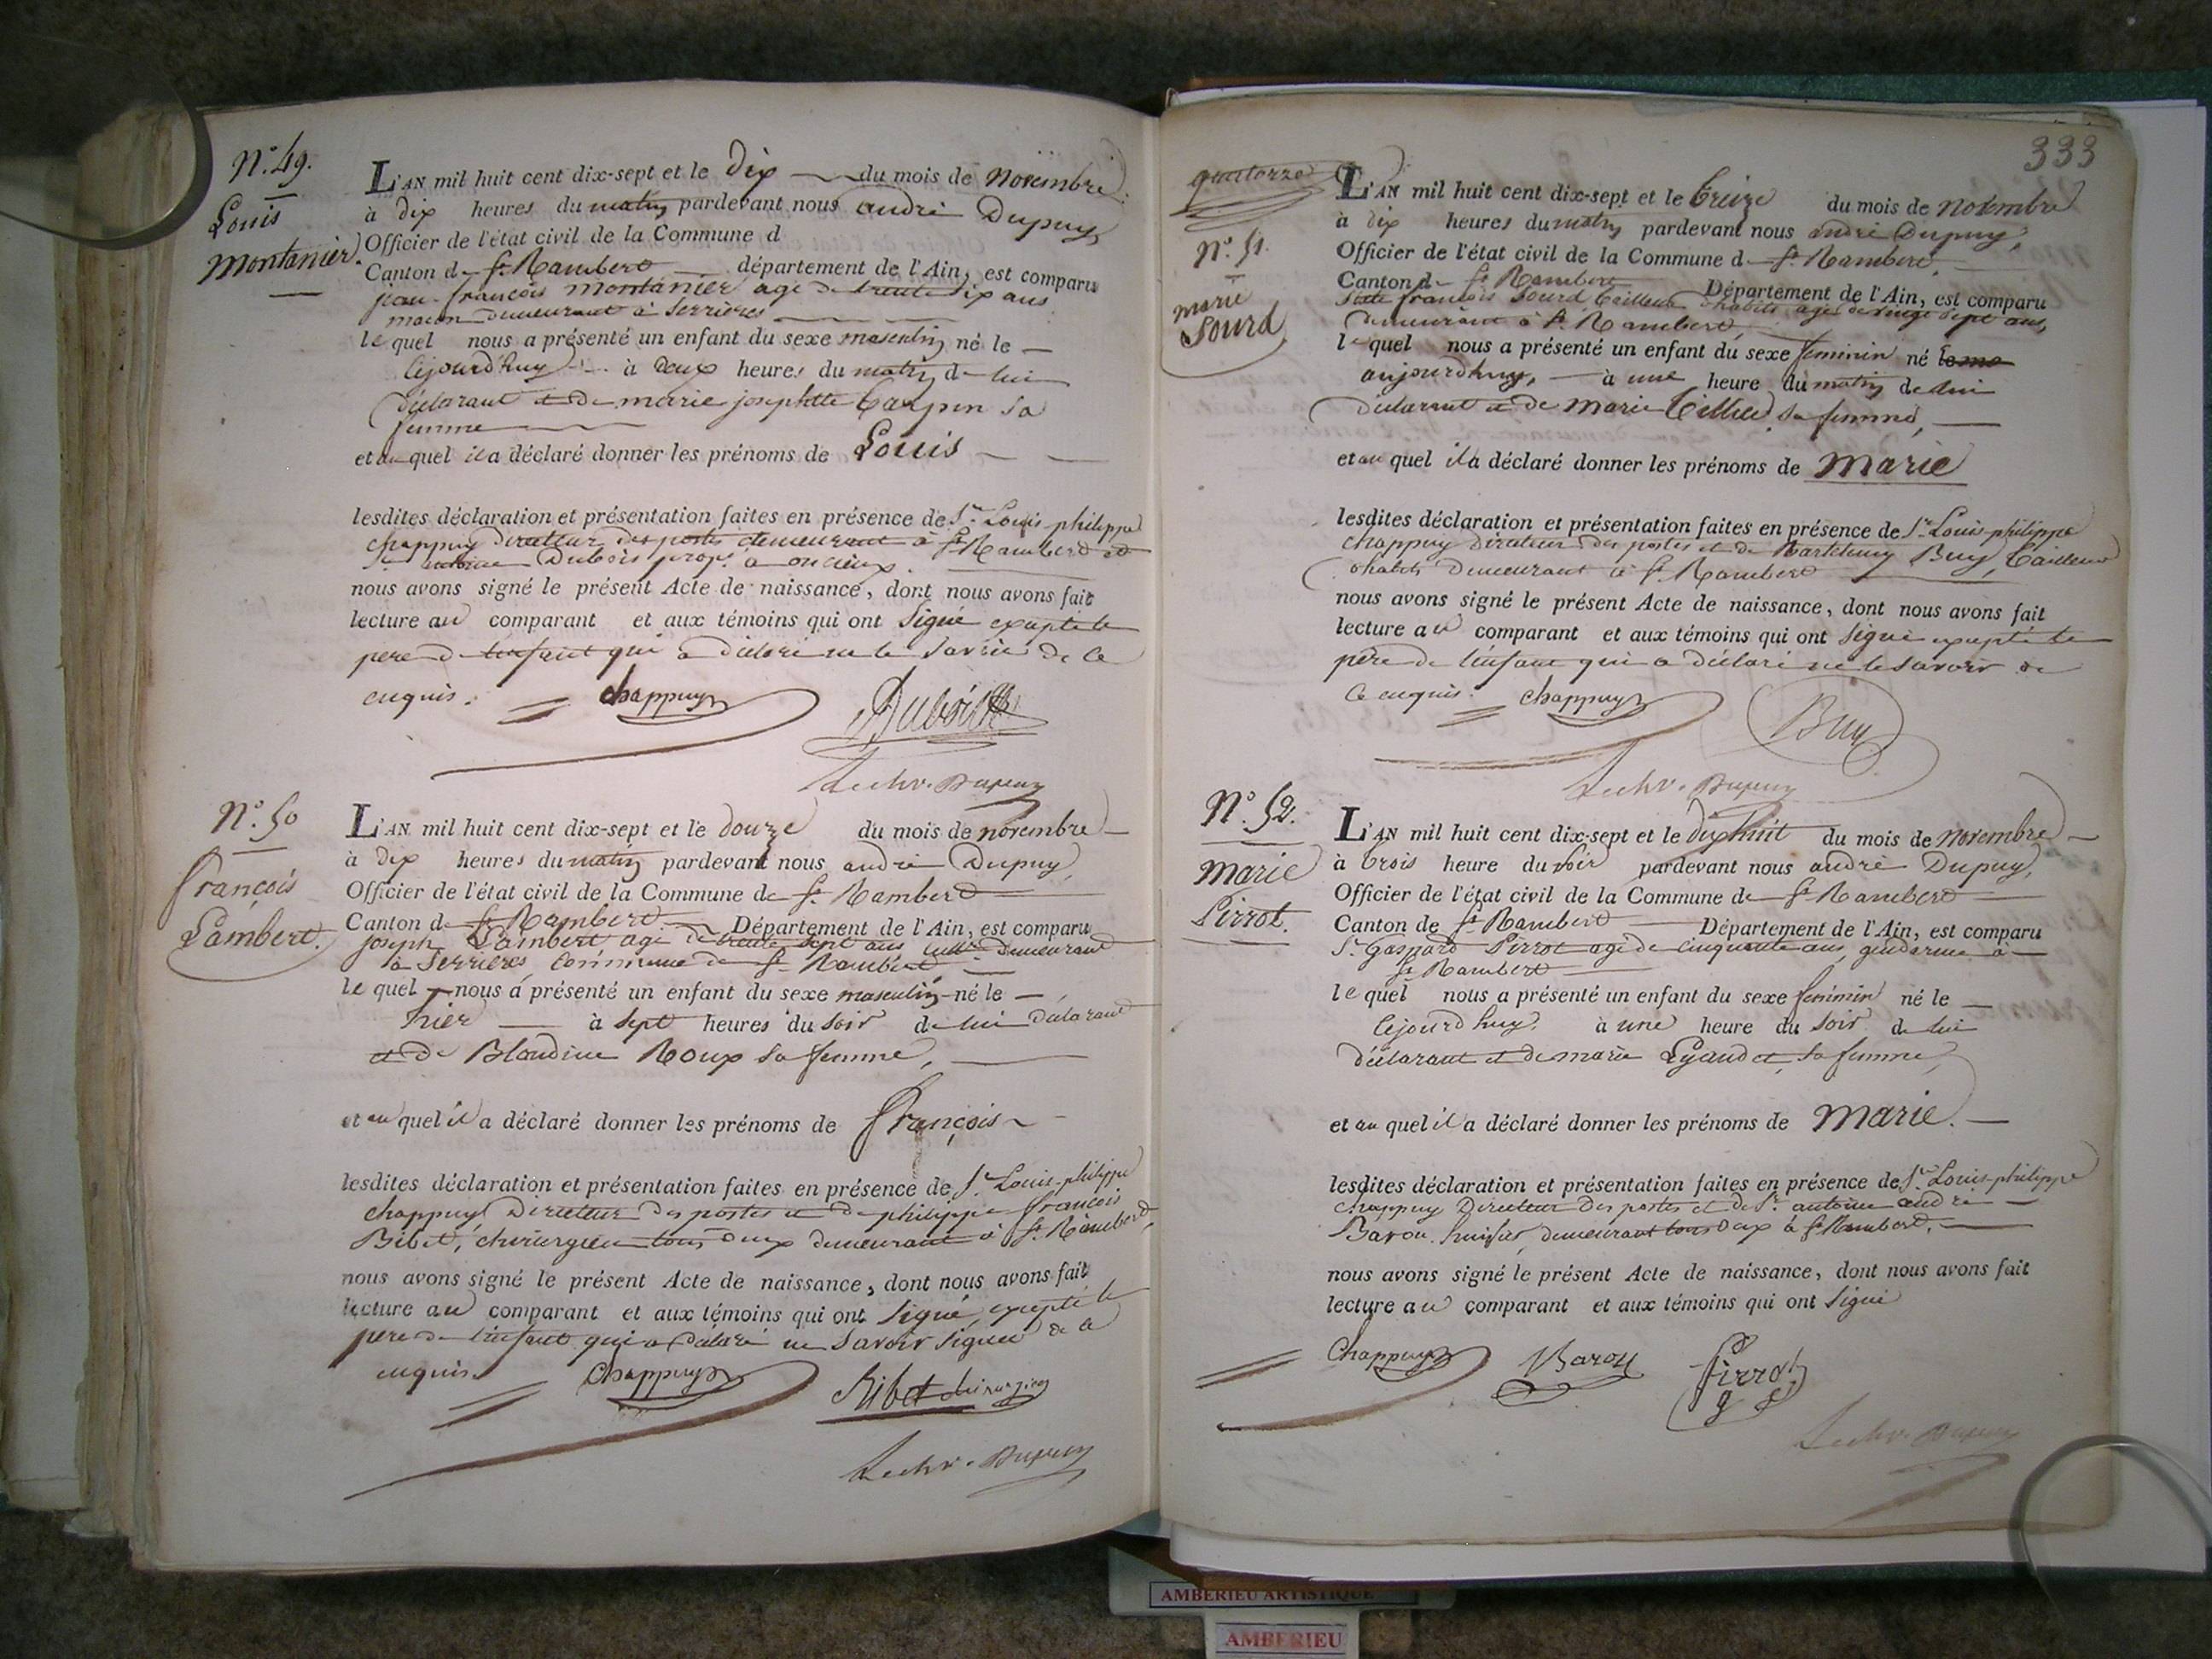 N.º 49.
Louis
Montanier.
L'AN mil huit cent dix-sept et le dix du mois de novembre
à dix heures du matin pardevant nous andré Dupuy
Officier de l'état civil de la Commune d
Canton de St. Rambert département de l'Ain, est comparu
jean-françois montanier agé de trente six ans
maçon demeurant à Serrières
lequel nous a présenté un enfant du sexe masculin né le
cejourd'huy à deux heures du matin de lui
déclarant et de marie josephtte Carpin sa
femme
et auquel il a déclaré donner les prénoms de Louis
lesdites déclaration et présentation faites en présence de Sr. Louis-philippe
chappuy Directeur des postes demeurant à St. Rambert et
Sr. antoine Dubois propre. à oncieux.
nous avons signé le présent Acte de naissance, dont nous avons fait
lecture au comparant et aux témoins qui ont signé excepté le
pere de l'enfant qui a déclaré ne le savoir de ce
enquis. chappuy Dubois
Dupuy
N.º 50
françois
Lambert.
L'AN mil huit cent dix-sept et le douze du mois de novembre
à dix heures du matin pardevant nous andré Dupuy,
Officier de l'état civil de la Commune de St. Rambert
Canton de St. Rambert. Département de l'Ain, est comparu
joseph Lambert agé de trente sept ans cultr. demeurant
à Serrières, Commune de St. Rambert
lequel nous a présenté un enfant du sexe masculin né le
hier à sept heures du soir de lui déclarant
et de Blandine Roux sa femme,
et auquel il a déclaré donner les prénoms de françois
lesdites déclaration et présentation faites en présence de Sr. Louis-philippe
chappuy Directeur des postes et de philippe françois
Ribet, chirurgien tous deux demeurant à St. Rambert,
nous avons signé le présent Acte de naissance, dont nous avons fait
lecture au comparant et aux témoins qui ont signé, excepté le
pere de l'enfant qui a déclaré ne savoir signer de ce
enquis. Chappuy Ribet chirurgien
Dupuy
333
quatorze
N.º 51.
marie
Sourd
L'AN mil huit cent dix-sept et le treize du mois de novembre
à dix heures du matin pardevant nous andré Dupuy,
Officier de l'état civil de la Commune d St. Rambert,
Canton de St. Rambert Département de l'Ain, est comparu
françois Sourd tailleur d'habits agé de vingt sept ans,
demeurant à St. Rambert,
lequel nous a présenté un enfant du sexe feminin né
aujourdhuy, à une heure du matin de lui
déclarant et de Marie sa femme,
et auquel il a déclaré donner les prénoms de Marie
lesdites déclaration et présentation faites en présence de Sr. Louis-philippe
chappuy Directeur des postes et de Barthelemy Buy, tailleur
d'habits demeurant à St. Rambert
nous avons signé le présent Acte de naissance, dont nous avons fait
lecture au comparant et aux témoins qui ont signé excepté le
père de l'enfant qui a déclaré ne le savoir de
ce enquis. chappuy Buy
Dupuy
N.º 52.
Marie
Pirrot.
L'AN mil huit cent dix-sept et le dix huit du mois de novembre
à trois heure du soir pardevant nous andré Dupuy,
Officier de l'état civil de la Commune de St. Rambert
Canton de St. Rambert Département de l'Ain, est comparu
Sr. Gaspard Pirrot agé de cinquante ans, gendarme à
St. Rambert
lequel nous a présenté un enfant du sexe feminin né le
cejourd'huy. à une heure du soir de lui
déclarant et de marie Lyaudet, sa femme,
et auquel il a déclaré donner les prénoms de Marie.
lesdites déclaration et présentation faites en présence de Sr. Louis-philippe
chappuy Directeur des postes et de Sr. antoine andré
Baron huissier, demeurant tous deux à St. Rambert.
nous avons signé le présent Acte de naissance, dont nous avons fait
lecture au comparant et aux témoins qui ont signé
Chappuy Baron Pirrot
Dupuy
AMBERIEU ARTISTIQUE
AMBERIEU